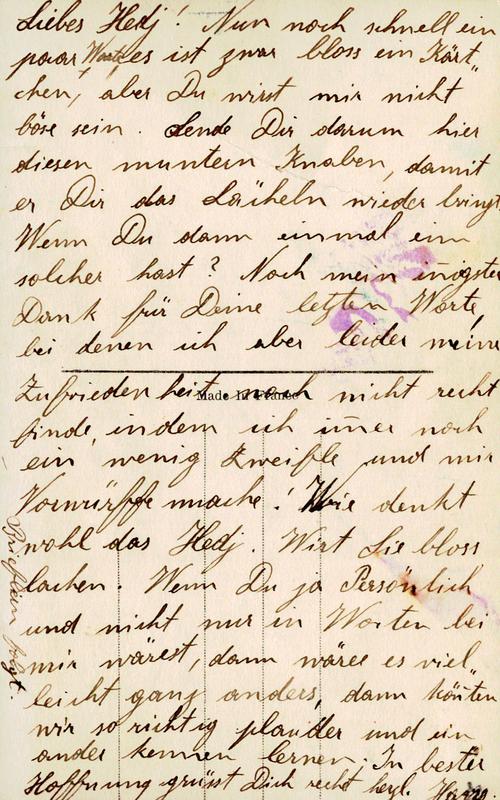 Liebes Hedj! Nun noch schnell ein
paar Worte, es ist zwar bloss ein Kärt„
chen, aber Du wirst mir nicht
böse sein. Sende Dir darum hier
diesen muntern Knaben, damit
er Dir das Lächeln wieder bringt.
Wenn Du dann einmal ein
solcher hast? Noch mein inigster
Dank für Deine letzten Worte,
bei denen ich aber leider meine
Made in France
Zufriedenheit noch nicht recht
finde, indem ich imer noch
ein wenig Zweifle und mir
Vorwürffe mache! Wie denkt
wohl das Hedj. Wirt Sie bloss
lachen. Wenn Du ja Persönlich
und nicht nur in Worten bei
mir wärest, dann wäre es viel„
leicht ganz anders, dann könten
wir so richtig plauder und ein
ander kennen lernen. In bester
Hoffnung grüsst Dich recht herzl.
Brieflein folgt.